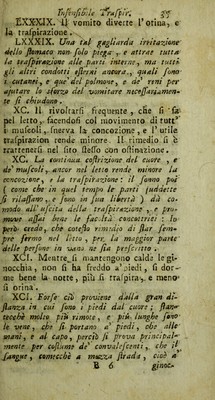 Insensibile Traspir. 35
LXXXIX. Il vomito diverte l'orina, e
la traspirazione.
LXXXIX. Una tal gagliarda irritazione
dello stomaco non solo piega, e attrae tutta
la traspirazione alle parti interne, ma tutti
gli altri condotti esterni ancora, quali sono
i cutanei, e que' del polmone, e de' reni per
ajutare lo sforzo del vomitare necessariamen-
te si chiudono.
XC. Il rivoltarsi frequente, che si fa
nel letto, facendosi col movimento di tutt'
i muscoli, snerva la concozione, e l'utile
traspirazion rende minore. Il rimedio si è
trattenersi nel sito stesso con ostinazione.
XC. La continua costrizione del cuore, e
de' muscoli, ancor nel letto rende minore la
concozione, e la traspirazione: il sonno poi
(come che in quel tempo le parti suddette
si rilassano, e sono in sua libertà) dà co-
modo all'uscita della traspirazione, e pro-
muove assai bene le facoltà concottrici: Io
però credo, che cotesto rimedio di star sem-
pre fermo nel letto, per la maggior parte
delle persone in vano ne sia perscritto.
XCI. Mentre si mantengono calde le gi-
nocchia, non si ha freddo a' piedi, si dor-
me bene la notte, più si traspira, e meno
si orina.
XCI. Forse ciò proviene dalla gran di-
stanza in cui sono i piedi dal cuore; stan-
tecchè molto più rimote, e più lunghe sono
le vene, che si portano a' piedi, che alle
mani, e al capo, perciò si prova principal-
mente per costume de' convalescenti, che il
sangue, comecchè a mezza strada, cioè a'
B 6 ginoc-